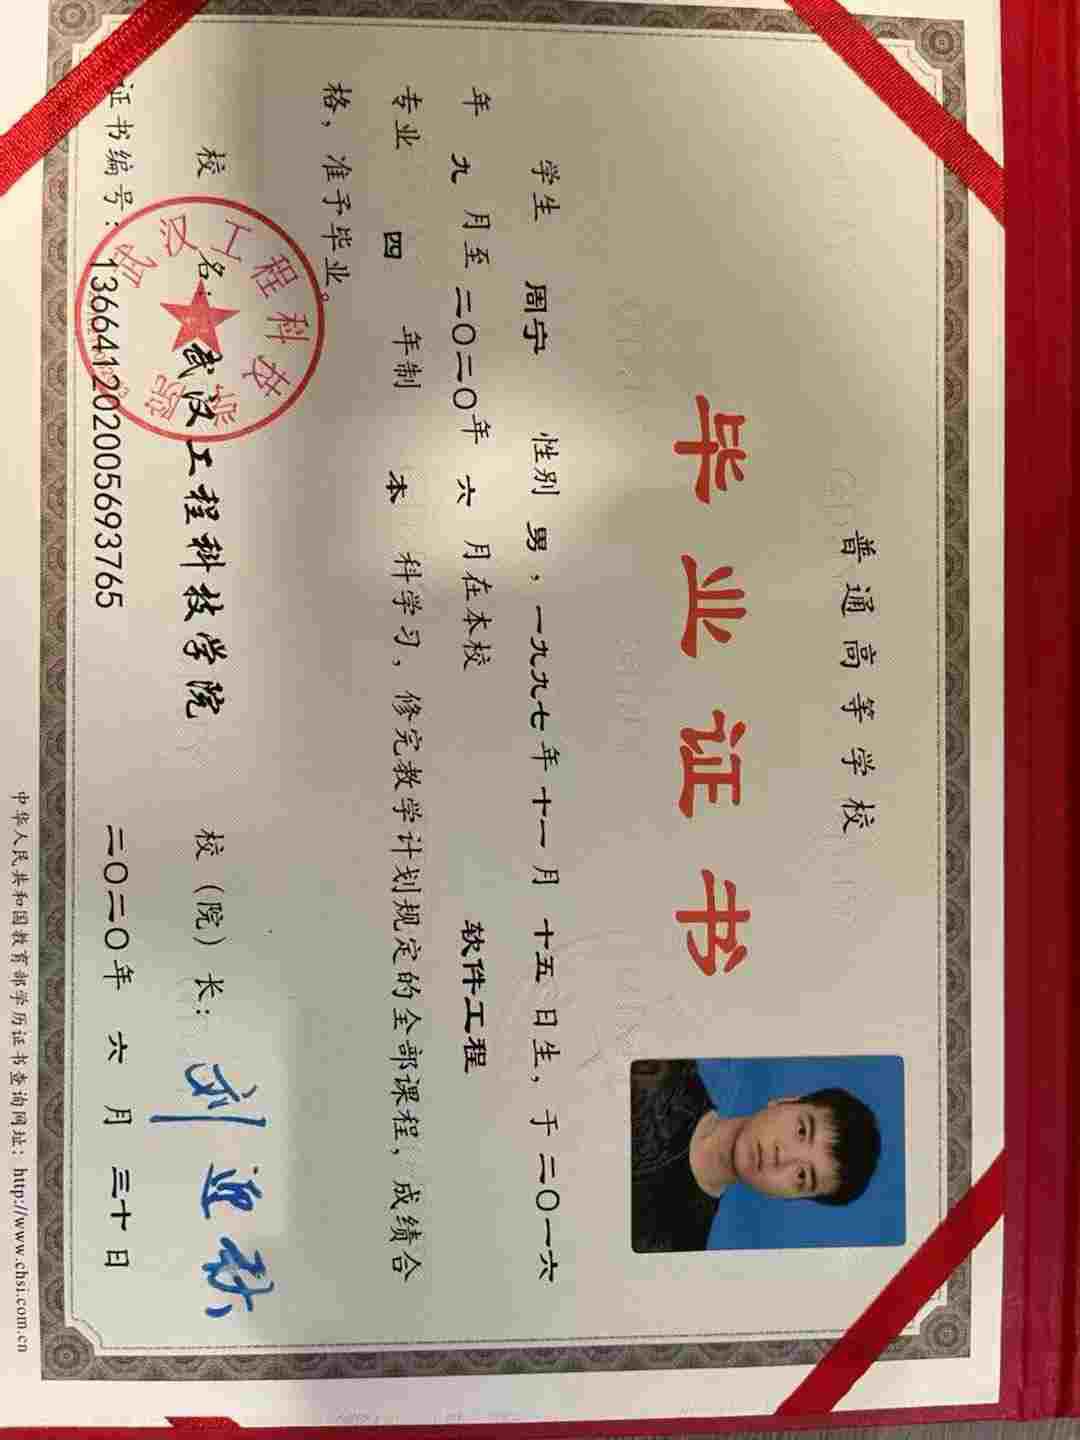 普通高等学校
毕业证书
学生 周宁 性别 男，一九九七年十一月 十五日生，于二〇一六
年 九 月至二〇二〇年 六 月在本校 软件工程
专业 四 年制 本 科学习，修完教学计划规定的全部课程，成绩合
格，准予毕业。
校 名：武汉工程科技学院 校（院）长：
武汉工程科技学院
证书编号：136641202005693765 二〇二〇年 六 月 三十日
中华人民共和国教育部学历证书查询网址：http://www.chsi.com.cn